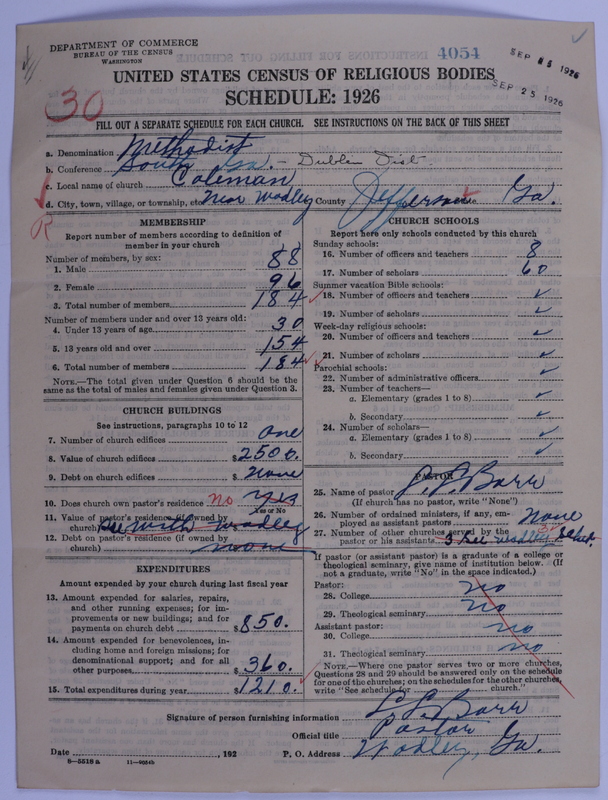 DEPARTMENT OF COMMERCE
BUREAU OF THE CENSUS
WASHINGTON
4054
SEP 25 1926
UNITED STATES CENSUS OF RELIGIOUS BODIES
SCHEDULE: 1926
30
FILL OUT A SEPARATE SCHEDULE FOR EACH CHURCH. SEE INSTRUCTIONS ON THE BACK OF THIS SHEET
a. Denomination Methodist
b. Conference South Ga. - Dublin Dist
c. Local name of church Coleman
d. City, town, village, or township, etc. Near Wadley County Jefferson Ga.
R
MEMBERSHIP
Report number of members according to definition of
member in your church
Number of members, by sex:
1. Male 88
2. Female 96
3. Total number of members 184
Number of members under and over 13 years old:
4. Under 13 years of age 30
5. 13 years old and over 154
6. Total number of members 184
NOTE.—The total given under Question 6 should be the
same as the total of males and females given under Question 3.
CHURCH BUILDINGS
See instructions, paragraphs 10 to 12
7. Number of church edifices one
8. Value of church edifices $2500.
9. Debt on church edifices $none
10. Does church own pastor's residence no Yes
Yes or No
11. Value of pastor's residence (if owned by
church) with Wadley
12. Debt on pastor's residence (if owned by
church) none
EXPENDITURES
Amount expended by your church during last fiscal year
13. Amount expended for salaries, repairs,
and other running expenses; for im-
provements or new buildings; and for
payments on church debt $850.
14. Amount expended for benevolences, in-
cluding home and foreign missions; for
denominational support; and for all
other purposes $360.
15. Total expenditures during year $1210.
CHURCH SCHOOLS
Report here only schools conducted by this church
Sunday schools:
16. Number of officers and teachers 8
17. Number of scholars 60
Summer vacation Bible schools:
18. Number of officers and teachers ✓
19. Number of scholars ✓
Week-day religious schools:
20. Number of officers and teachers ✓
21. Number of scholars ✓
Parochial schools:
22. Number of administrative officers ✓
23. Number of teachers—
a. Elementary (grades 1 to 8) ✓
b. Secondary ✓
24. Number of scholars—
a. Elementary (grades 1 to 8) ✓
b. Secondary ✓
PASTOR
25. Name of pastor L. S. Barr
(If church has no pastor, write "None")
26. Number of ordained ministers, if any, em-
ployed as assistant pastors None
27. Number of other churches served by the
pastor or his assistants 3 See Wadley
If pastor (or assistant pastor) is a graduate of a college or
theological seminary, give name of institution below. (If
not a graduate, write "No" in the space indicated.)
Pastor:
28. College no
29. Theological seminary no
Assistant pastor:
30. College no
31. Theological seminary no
NOTE.—Where one pastor serves two or more churches,
Questions 28 and 29 should be answered only on the schedule
for one of the churches; on the schedules for the other churches,
write "See schedule for church."
Signature of person furnishing information L. S. Barr
Official title Pastor
Date , 192 P. O. Address Wadley, Ga.
8—5518 a